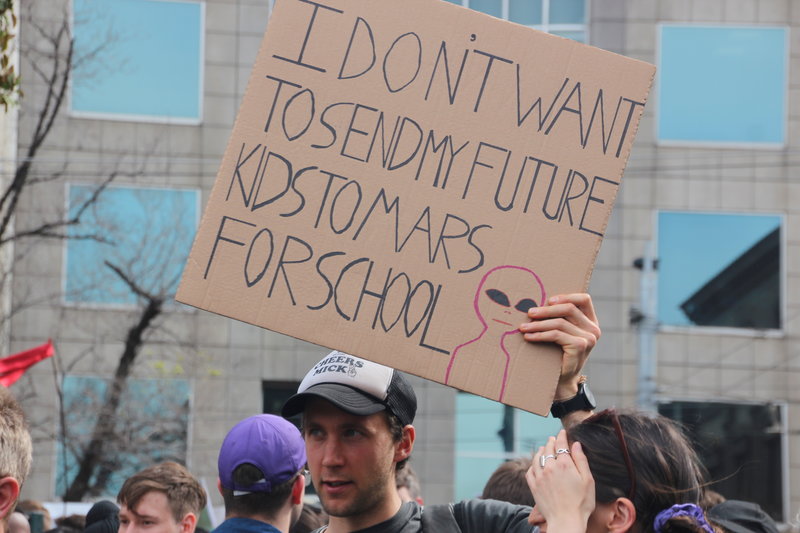 I DON'T WANT
TO SEND MY FUTURE
KIDS TO MARS
FOR SCHOOL
CHEERS
MICK